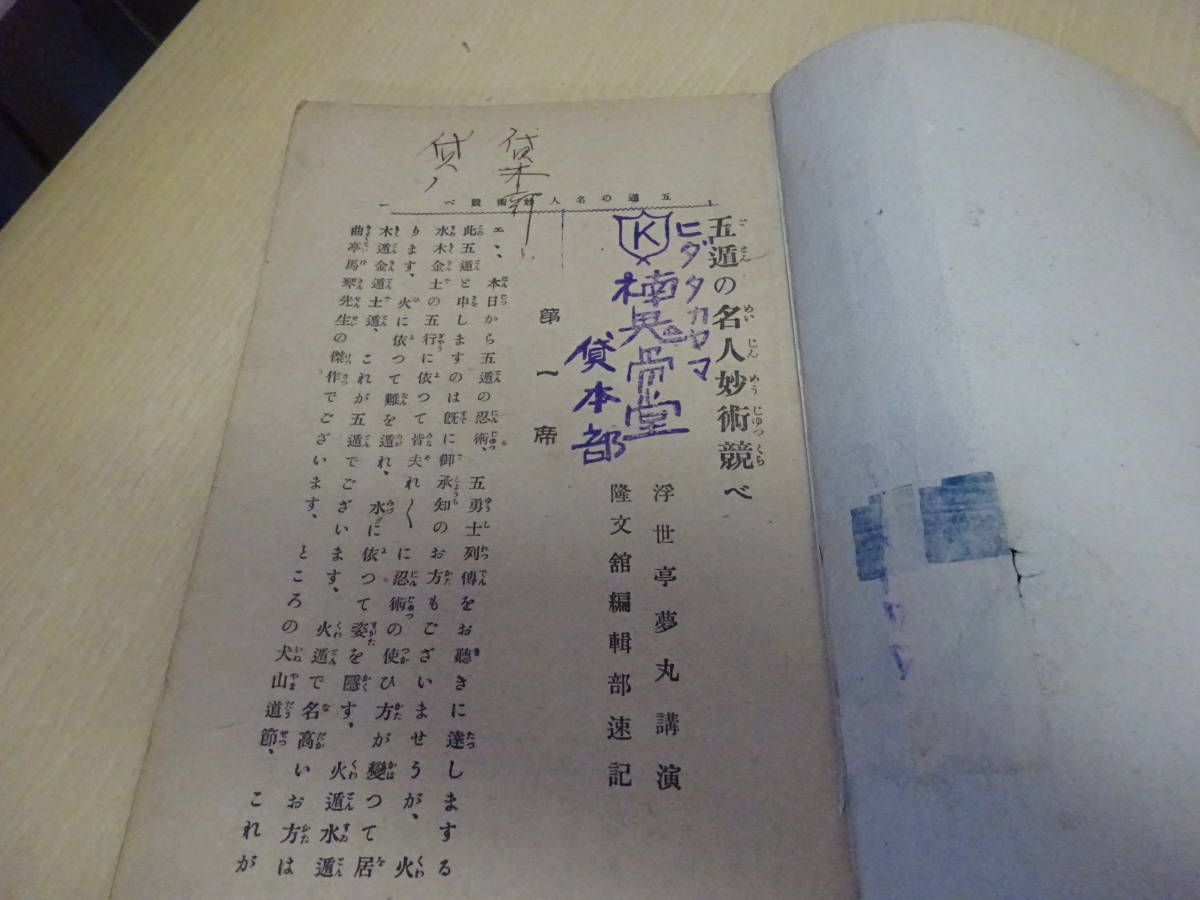 五遁の名人妙術競べ
五遁の名人妙術競べ
浮世亭夢丸講演
隆文舘編輯部速記
ヒダタカヤマ
K
貸本部
第一席
エヽ、本日から五遁の忍術、五勇士列傳をお聽きに達しまする
此五遁と申しますのは既に御承知のお方もございませうが、火
水木金土の五行に依つて皆夫れ〱に忍術の使ひ方が變つて居
ります、火に依つて難を遁れ、水に依つて姿を隱す、火遁水遁
木遁金遁土遁、これが五遁でございます。火遁で名高いお方は
曲亭馬琴先生の傑作でございます、ところの犬山道節、これが